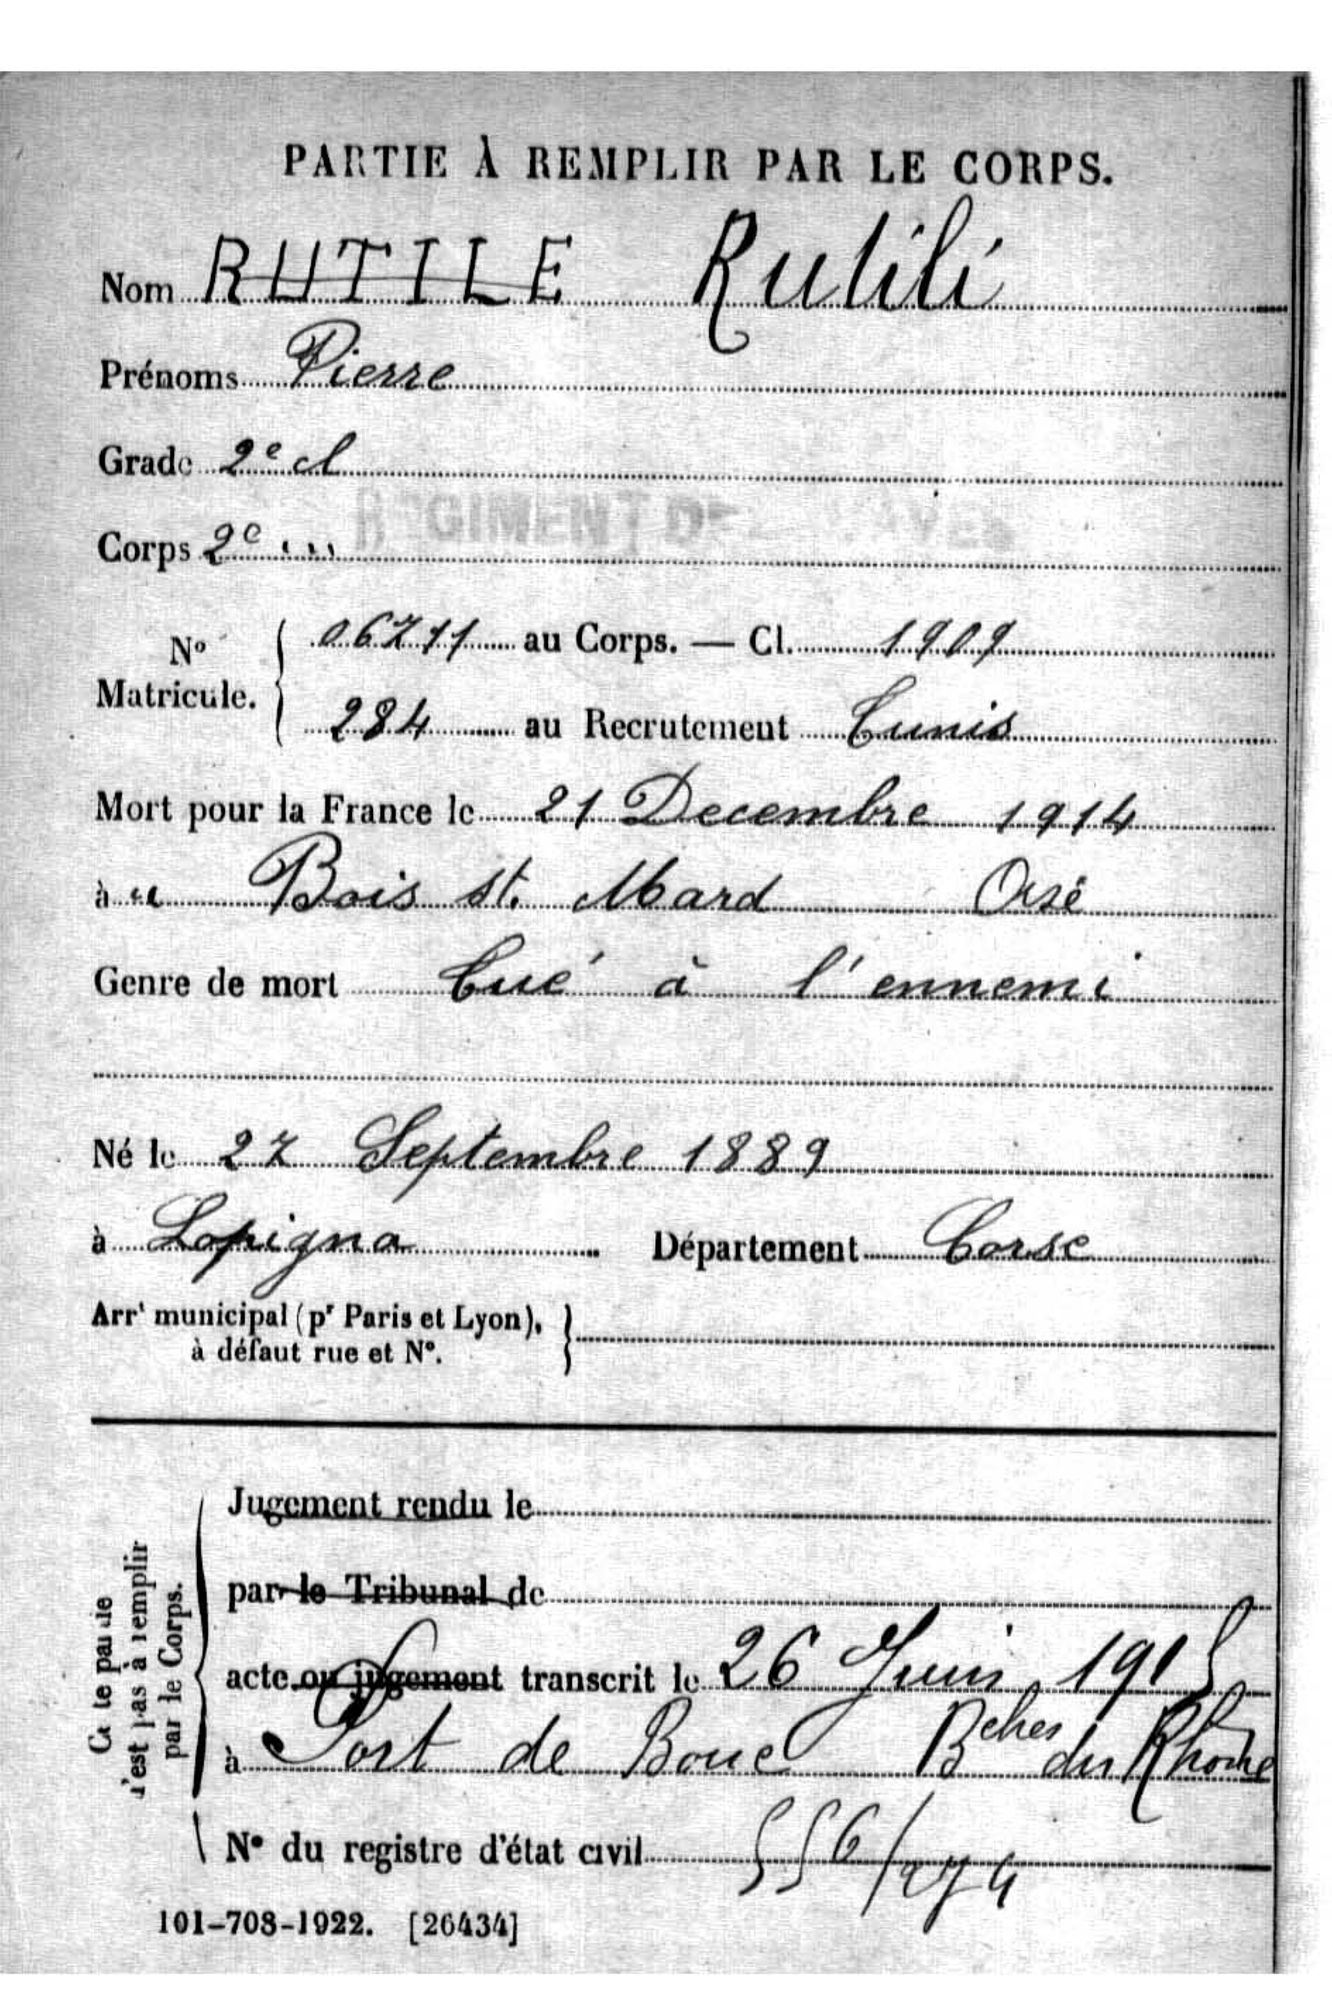 PARTIE À REMPLIR PAR LE CORPS.
Nom RUTILE Rutili
Prénoms Pierre
Grade 2e cl
REGIMENT DE
Corps 2e
No Matricule. 06711 au Corps. — Cl. 1909
284 au Recrutement Tunis
Mort pour la France le 21 Decembre 1914
à Bois St. Mard Oise
Genre de mort Tué à l'ennemi
Né le 27 Septembre 1889
à Lopigna Département Corse
Arrt municipal (pr Paris et Lyon),
à défaut rue et No.
Cette partie
n'est pas à remplir
par le Corps.
Jugement rendu le
par le Tribunal de
acte ou jugement transcrit le 26 Juin 1915
à Port de Bouc Bches du Rhône
No du registre d'état civil 556/274
101-708-1922. [26434]